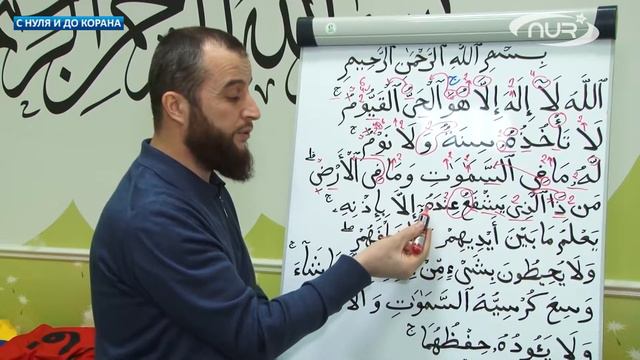 С НУЛЯ И ДО КОРАНА
NUR
بِسْمِ اللَّهِ الرَّحْمَٰنِ الرَّحِيمِ
اللَّهُ لَآ إِلَٰهَ إِلَّا هُوَ الْحَيُّ الْقَيُّومُ ۚ
لَا تَأْخُذُهُ سِنَةٌ وَلَا نَوْمٌ ۚ
لَّهُ مَا فِي السَّمَٰوَٰتِ وَمَا فِي الْأَرْضِ ۗ
مَن ذَا الَّذِي يَشْفَعُ عِندَهُ إِلَّا بِإِذْنِهِ ۚ
يَعْلَمُ مَا بَيْنَ أَيْدِيهِمْ خَلْفَهُمْ ۖ
وَلَا يُحِيطُونَ بِشَيْءٍ مِّنْ شَآءَ ۚ
وَسِعَ كُرْسِيُّهُ السَّمَٰوَٰتِ
وَلَا يَئُودُهُ حِفْظُهُمَا ۚ